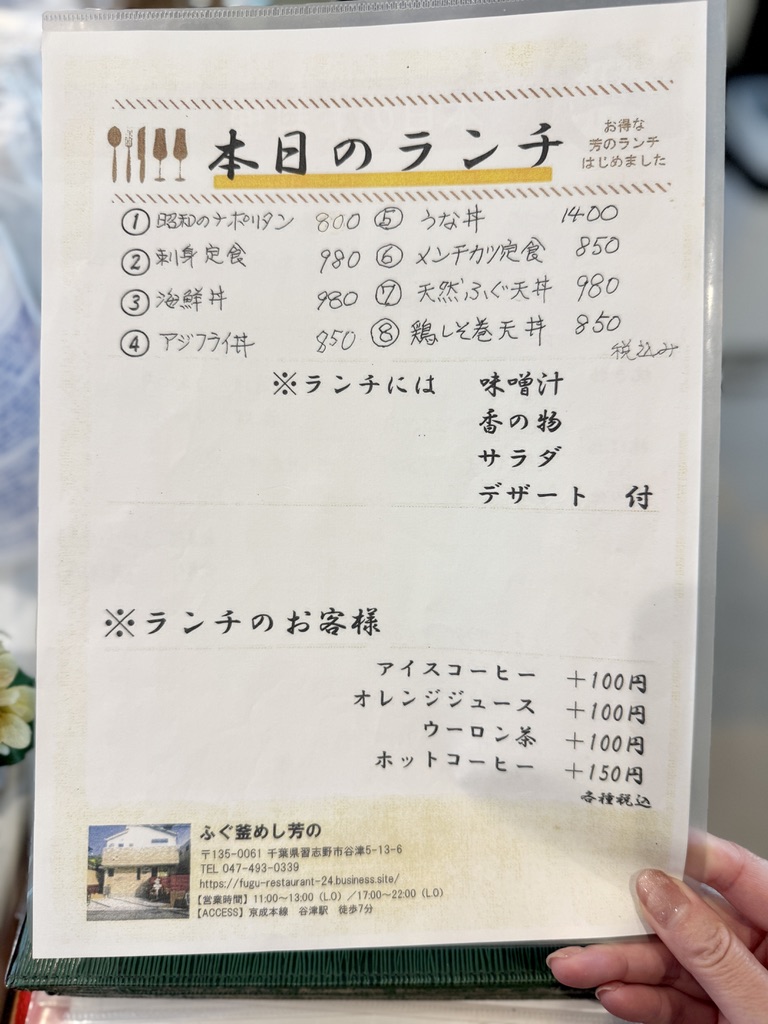 本日のランチ
お得な
芳のランチ
はじめました
① 昭和のナポリタン 800
② 刺身定食 980
③ 海鮮丼 980
④ アジフライ丼 850
⑤ うな丼 1400
⑥ メンチカツ定食 850
⑦ 天然ふぐ天丼 980
⑧ 鶏しそ巻天丼 850
税込み
※ランチには 味噌汁
香の物
サラダ
デザート 付
※ランチのお客様
アイスコーヒー +100円
オレンジジュース +100円
ウーロン茶 +100円
ホットコーヒー +150円
各種税込
ふぐ釜めし芳の
〒135-0061 千葉県習志野市谷津5-13-6
TEL 047-493-0339
https://fugu-restaurant-24.business.site/
【営業時間】11:00～13:00（L.O）／17:00～22:00（L.O）
【ACCESS】京成本線 谷津駅 徒歩7分